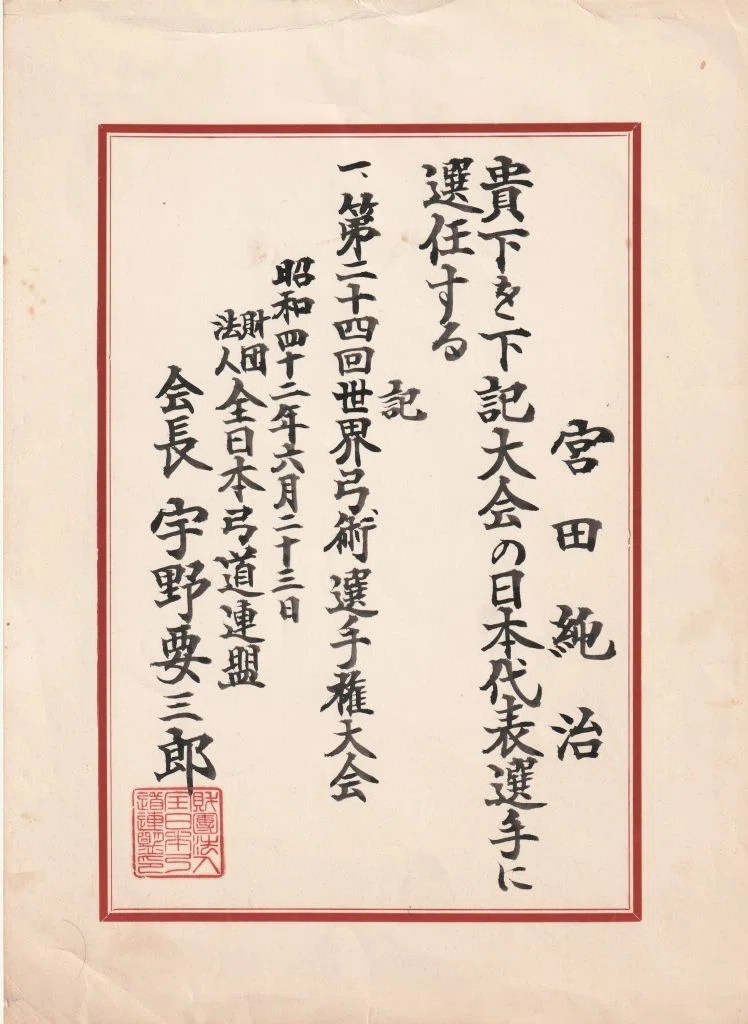 宮田純治
貴下を下記大会の日本代表選手に
選任する
記
一、第二十四回世界弓術選手権大会
昭和四十二年六月二十三日
財団法人全日本弓道連盟
会長 宇野要三郎
財團法人
全日本弓
道連盟印